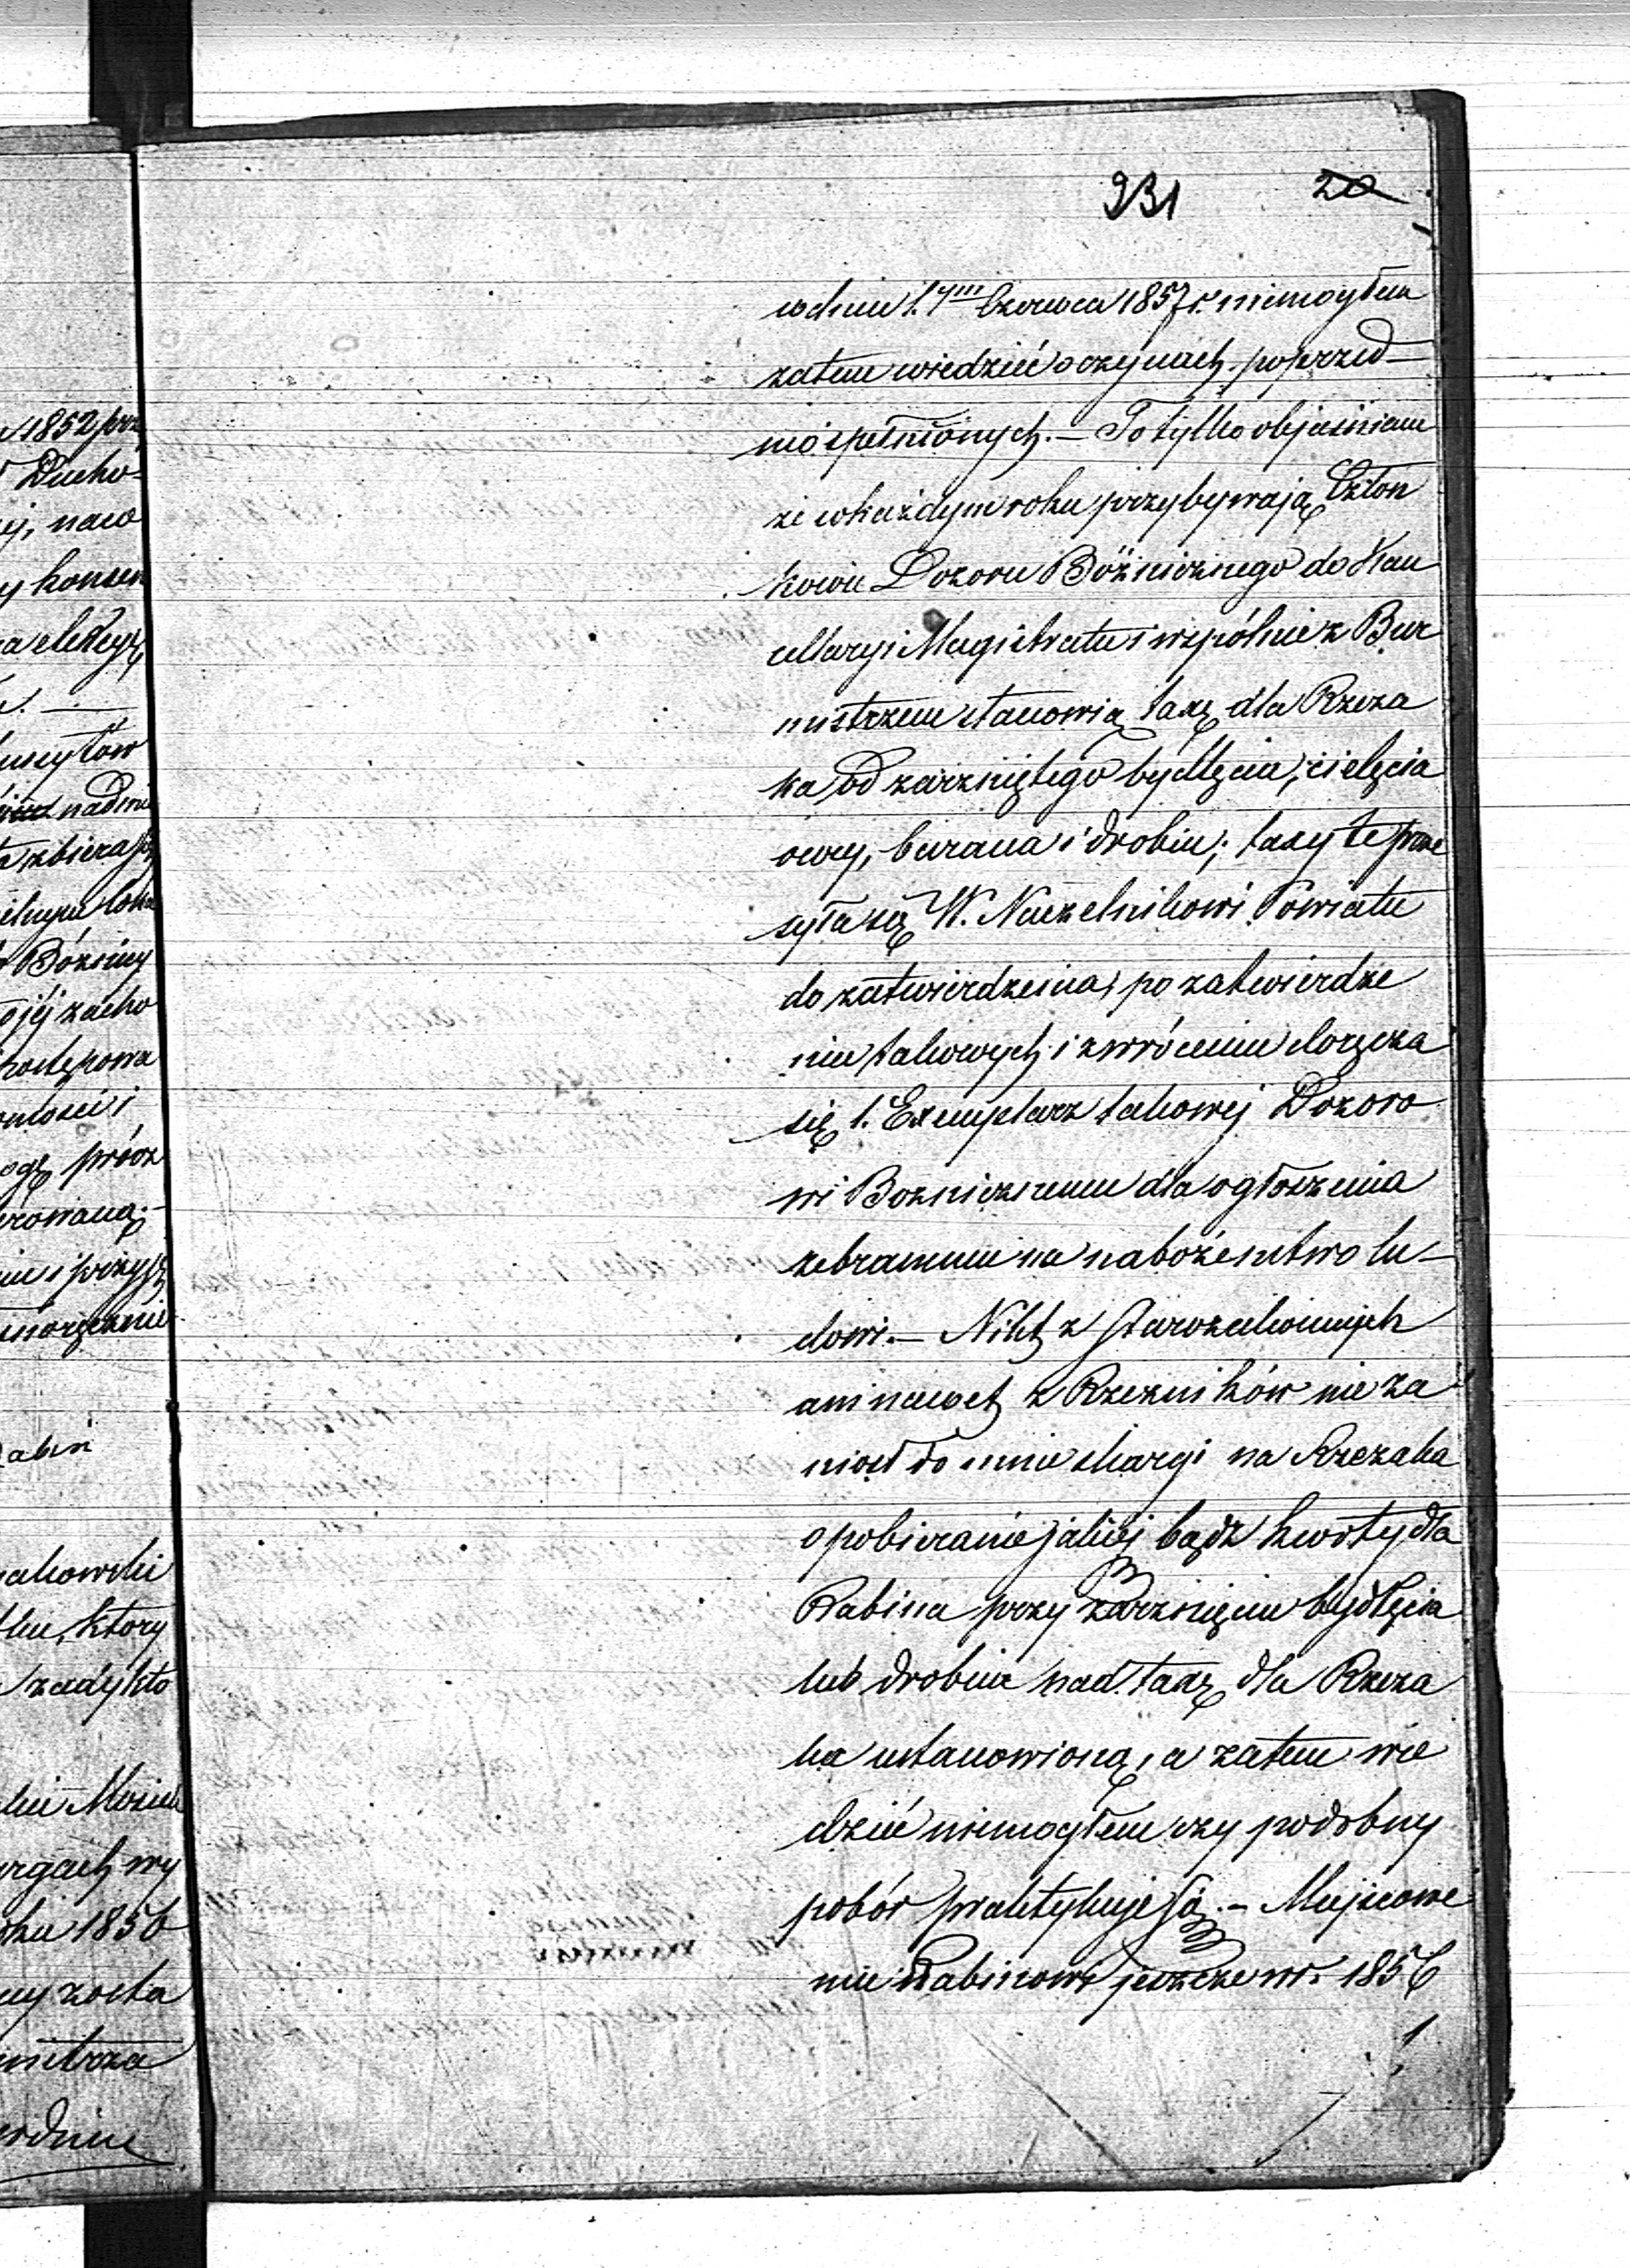 931 20
w dniu 1.ym Czerwca 1857 r. niemogłem
zatem wiedzieć o czynach poprzed-
nio spełnionych. — To tylko objaśniam
że w każdym roku przybywają Człon
kowie Dozoru Bóżniczego do Kan
cellaryi Magistratu i wspólnie z Bur
mistrzem stanowią taxę dla Rzeza
ka od zarzniętego bydlęcia, cielęcia
owcy, barana i drobiu; taxy te prze
syła się W. Naczelnikowi Powiatu
do zatwierdzenia, po zatwierdze
niu takowych i zwróceniu doręcza
się 1. Exemplarz takowej Dozoro
wi Bozniczemu dla ogłoszenia
zebranemu na nabożeństwo lu-
dowi. — Nikt z Starozakonnych
ani nawet z Rzezników nie za
niosł do mnie skargi na Rzezaka
o pobieranie jakiej bądz kwoty dla
Rabina przy zarznięciu bydlęcia
lub drobiu nad taxę dla Rzeza
ka ustanowioną, a zatem wie
dzieć niemogłem czy podobny
pobór praktykuje się. — Miejscowe
mu Rabinowi jeszcze w r. 1856
1852 prz
Ducho-
ej, nawo
y konsen
uszytów
nadmi
zbierają
Bóżnicy
ojéj zacho
postępowa
omości i
ogę prócz
rowaną.-
i przyję
norzeczenie
Rabin
akowski
ku, który
zadykto
rgach wy
oku 1856
ny zosta
mistrza